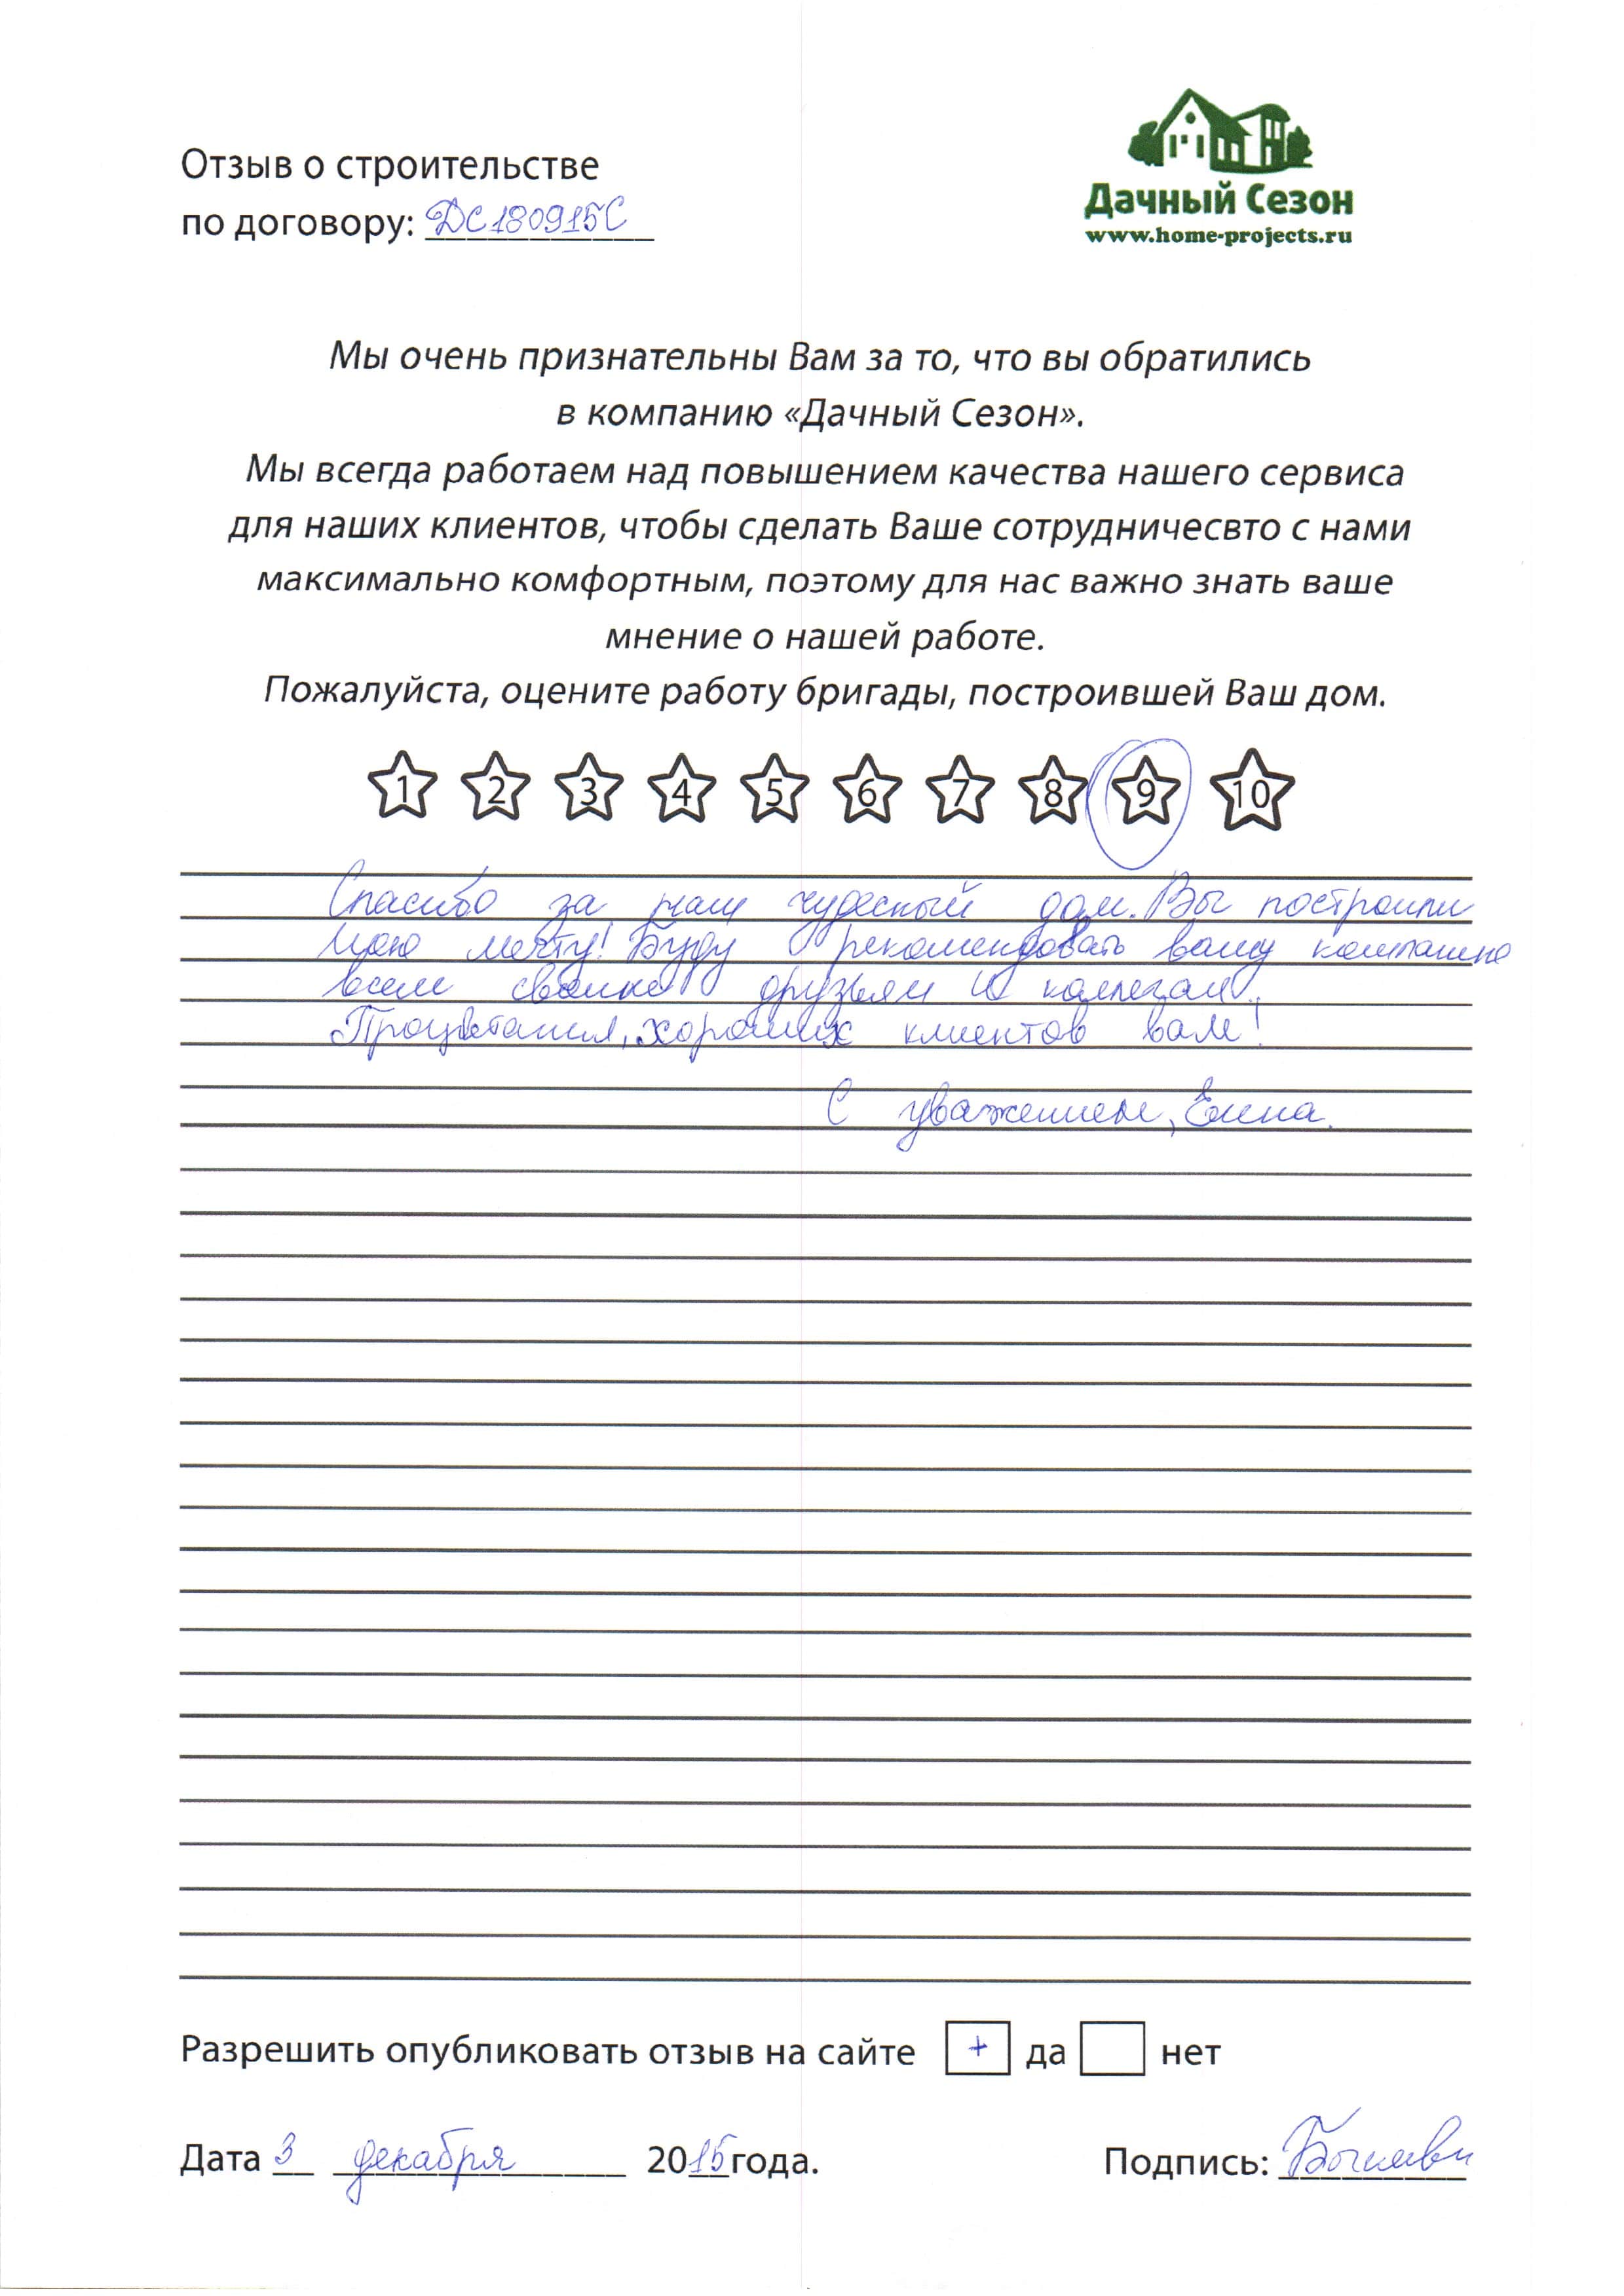 Отзыв о строительстве
по договору: ДС180915С
Дачный Сезон
www.home-projects.ru
Мы очень признательны Вам за то, что вы обратились
в компанию «Дачный Сезон».
Мы всегда работаем над повышением качества нашего сервиса
для наших клиентов, чтобы сделать Ваше сотрудничесвто с нами
максимально комфортным, поэтому для нас важно знать ваше
мнение о нашей работе.
Пожалуйста, оцените работу бригады, построившей Ваш дом.
1 2 3 4 5 6 7 8 9 10
Спасибо за наш чудесный дом. Вы построили
мою мечту! Буду рекомендовать вашу компанию
всем своим друзьям и коллегам.
Процветания, хороших клиентов вам!
С уважением, Елена.
Разрешить опубликовать отзыв на сайте + да нет
Дата 3 декабря 2015 года. Подпись: